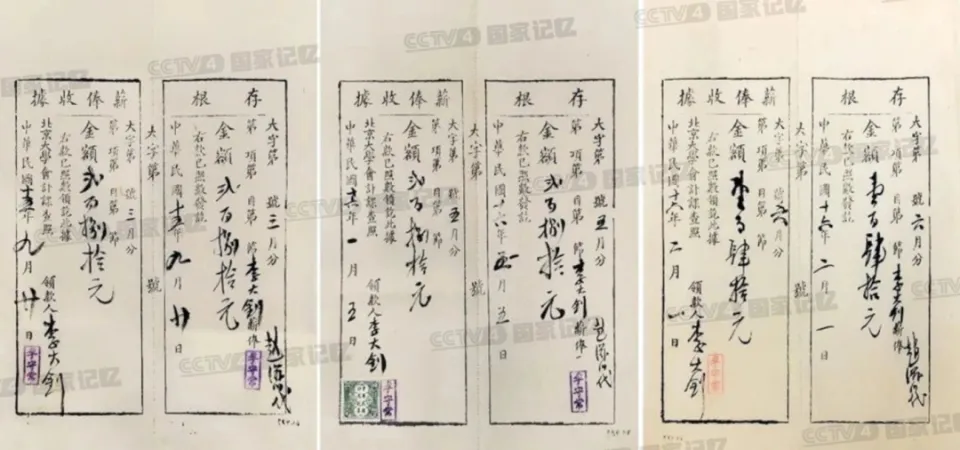 CCTV4 国家记忆
存根
大字第 號三月分
第 項第 目第 節 李大釗
金額 貳百捌拾元
右款已照數發訖
中華民國十五年九月廿日
代
李守常
大字第 號
薪俸收據
大字第 號三月分
第 項第 目第 節
金額 貳百捌拾元
右款已照數領訖此據
北京大學會計課查照
領款人 李大釗
李守常
中華民國十五年九月廿日
CCTV4 国家记忆
存根
大字第 號五月分
第 項第 目第 節 李大釗
金額 貳百捌拾元
右款已照數發訖
中華民國十六年 月五日
代
李守常
大字第 號
薪俸收據
大字第 號五月分
第 項第 目第 節
金額 貳百捌拾元
右款已照數領訖此據
北京大學會計課查照
領款人 李大釗
李守常
中華民國十六年一月五日
CCTV4 国家记忆
存根
大字第 號六月分
第 項第 目第 節 李大釗
金額 壹百肆拾元
右款已照數發訖
中華民國十六年二月一日
代
大字第 號
薪俸收據
大字第 號六月分
第 項第 目第 節
金額 壹百肆拾元
右款已照數領訖此據
北京大學會計課查照
領款人 李大釗
李守常
中華民國十六年二月一日